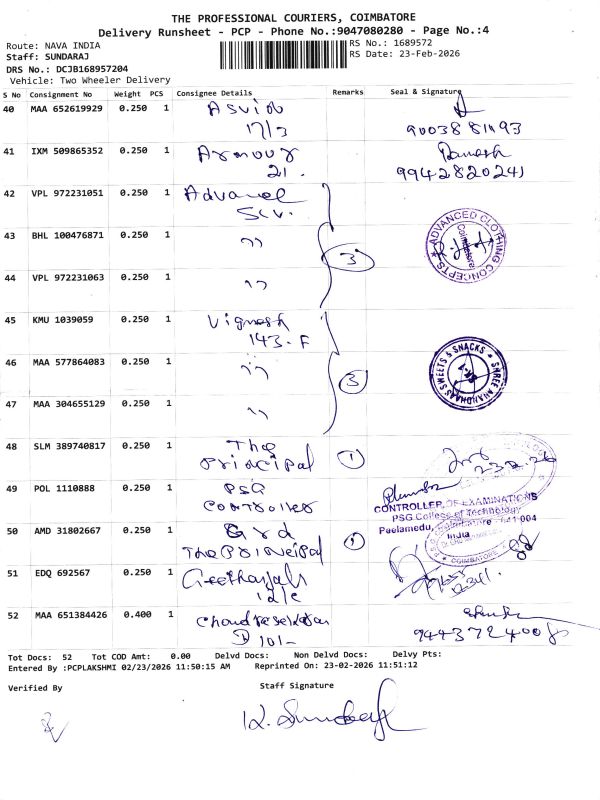 THE PROFESSIONAL COURIERS, COIMBATORE
Delivery Runsheet - PCP - Phone No.:9047080280 - Page No.:4
Route: NAVA INDIA
Staff: SUNDARAJ
DRS No.: DCJB168957204
Vehicle: Two Wheeler Delivery
RS No.: 1689572
RS Date: 23-Feb-2026
S No Consignment No Weight PCS Consignee Details Remarks Seal & Signature
40 MAA 652619929 0.250 1 Asvin
17/3
41 IXM 509865352 0.250 1 Armour Ramesh
21. 9942820241
42 VPL 972231051 0.250 1
43 BHL 100476871 0.250 1 " 3 ADVANCED CLOTHING CONCEPTS Coimbatore
44 VPL 972231063 0.250 1 "
45 KMU 1039059 0.250 1 Vignesh
143-F
46 MAA 577864083 0.250 1 " 3 SHREE ANANDHAAS SWEETS & SNACKS
47 MAA 304655129 0.250 1 "
48 SLM 389740817 0.250 1 The 1
principal
49 POL 1110888 0.250 1 PSG
controller
CONTROLLER OF EXAMINATIONS
PSG College of Technology
Peelamedu, Coimbatore - 641 004
India
COIMBATORE
50 AMD 31802667 0.250 1 Grd
The Principal
51 EDQ 692567 0.250 1 Geethanjali
52 MAA 651384426 0.400 1 Chandrasekaran
D 101-
Tot Docs: 52 Tot COD Amt: 0.00 Delvd Docs: Non Delvd Docs: Delvy Pts:
Entered By :PCPLAKSHMI 02/23/2026 11:50:15 AM Reprinted On: 23-02-2026 11:51:12
Verified By Staff Signature